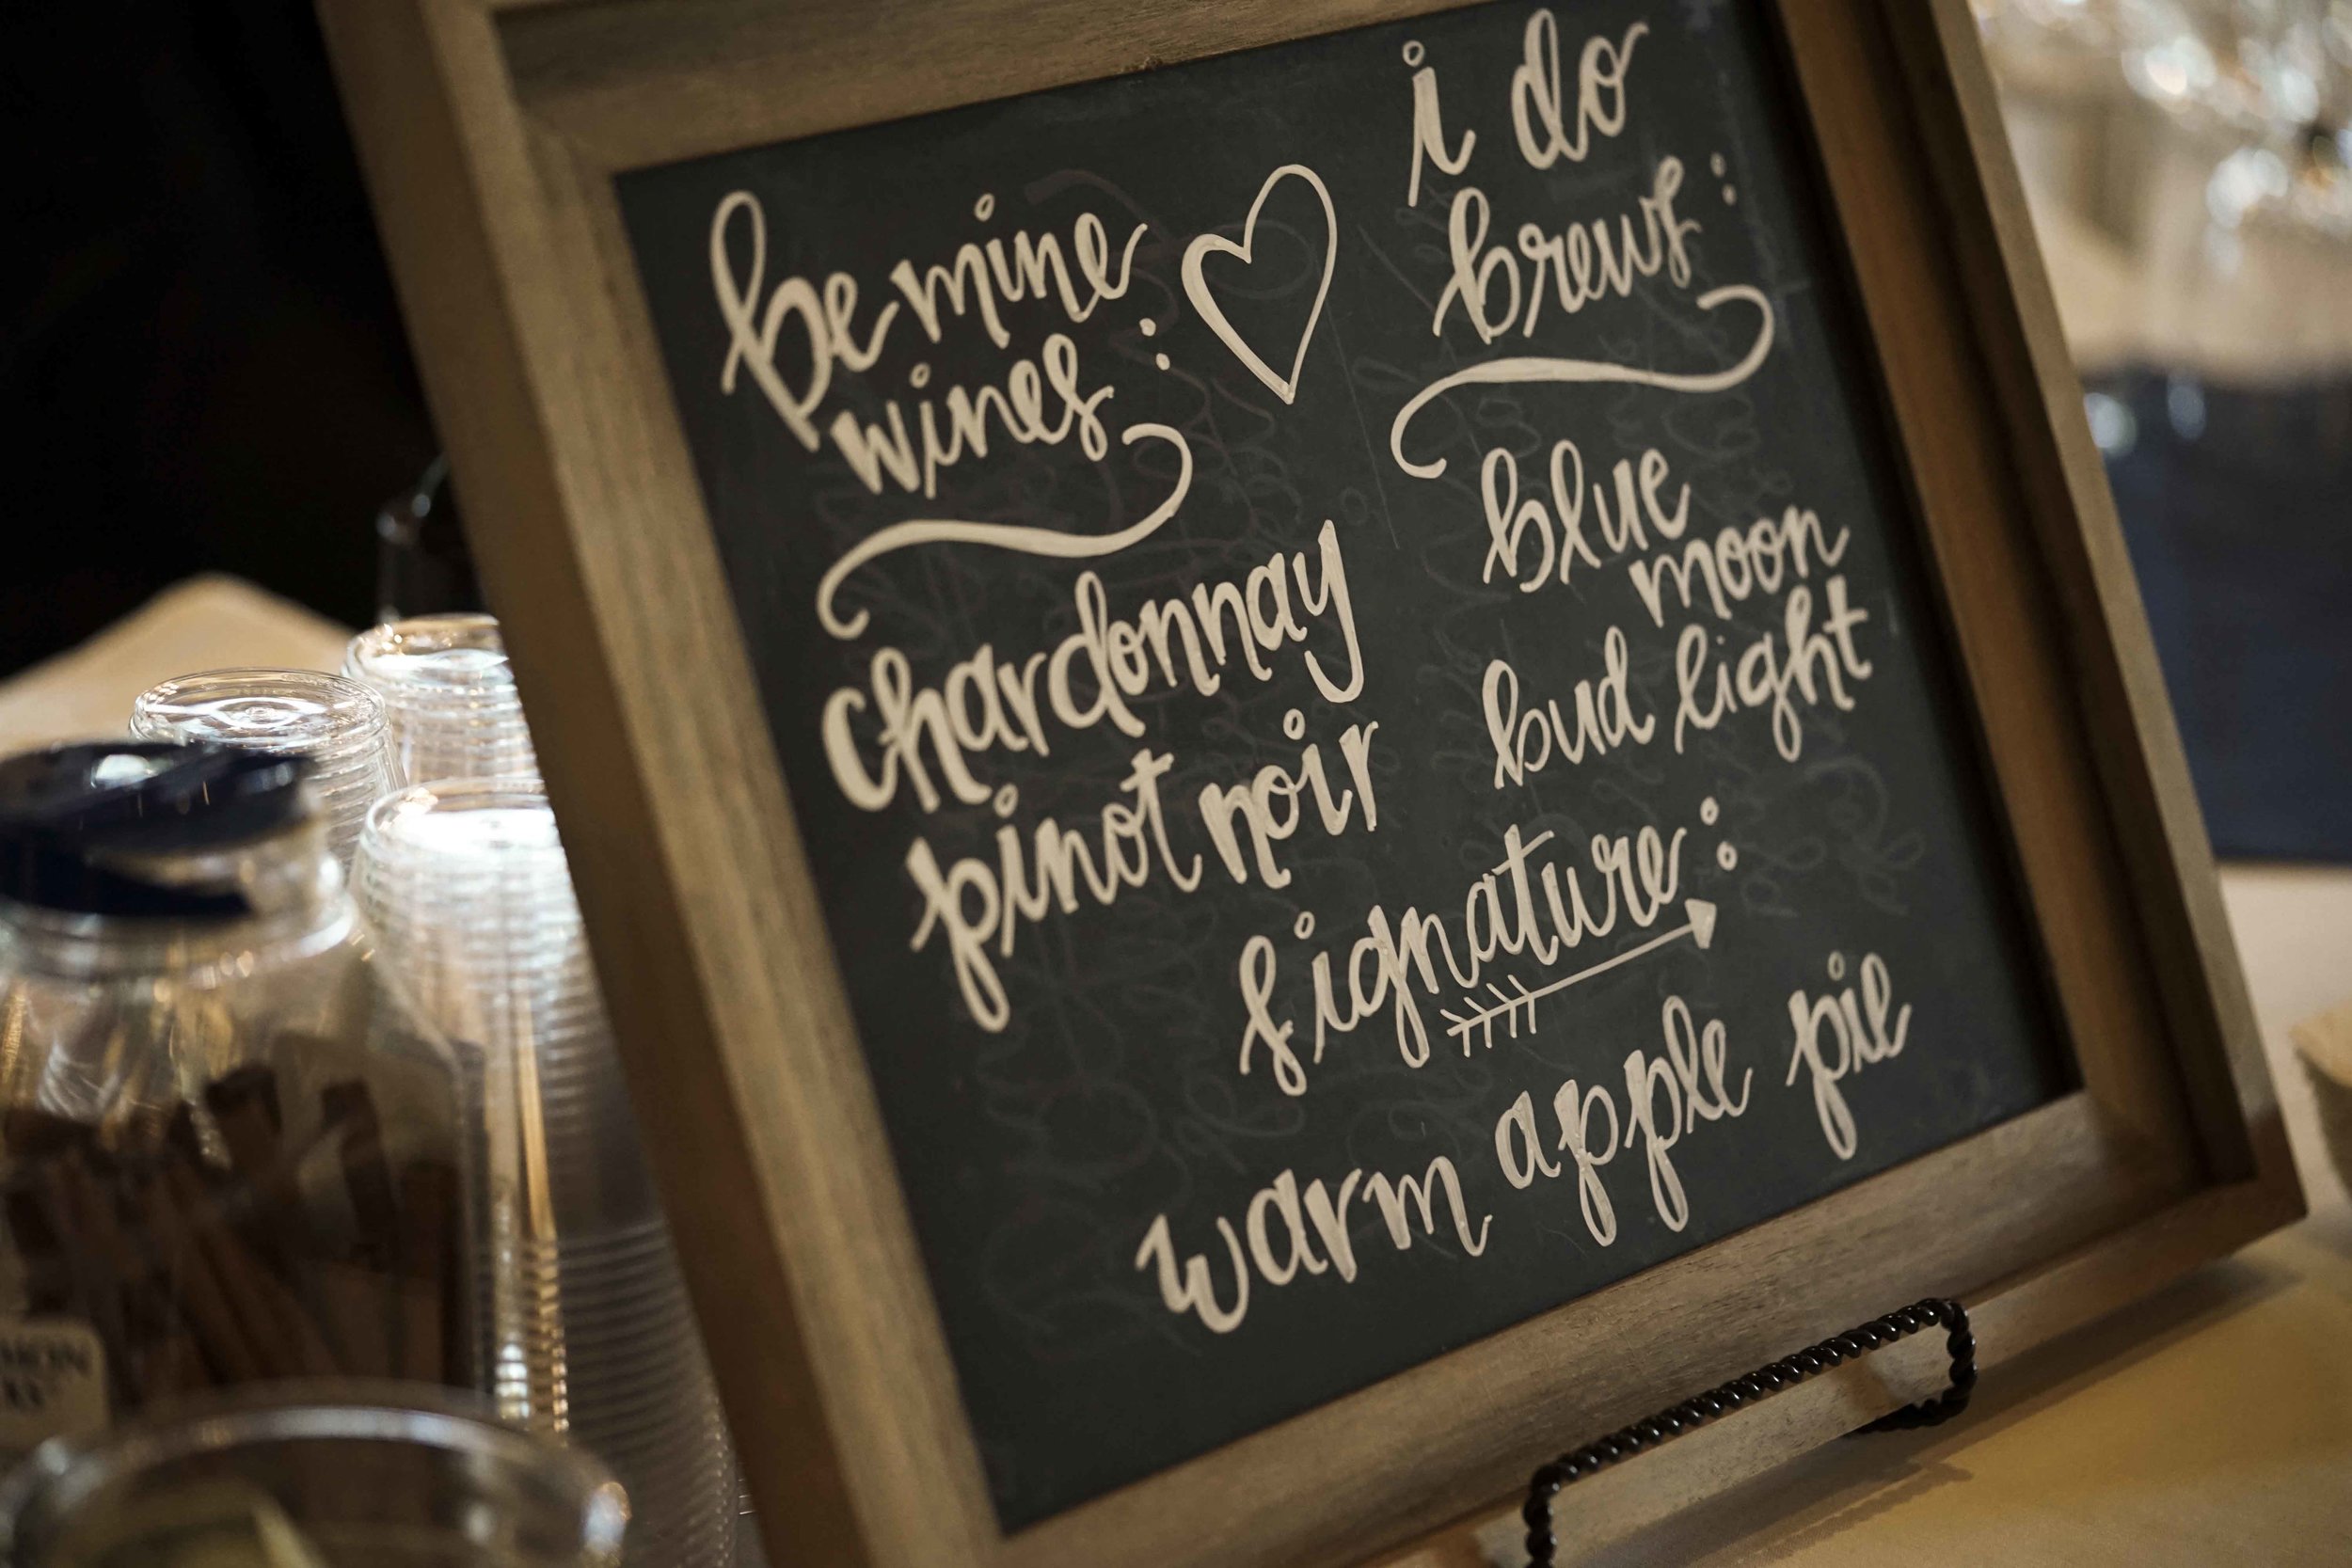 be mine
wines:
chardonnay
pinot noir
i do
brews:
blue
moon
bud light
signature:
warm apple pie